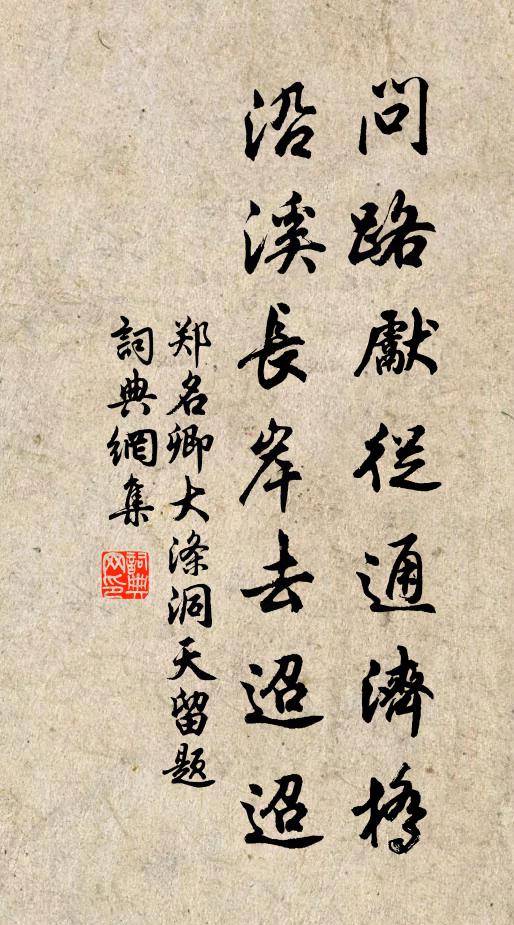 問路厭從通濟橋
沿溪長岸去迢迢
郑名卿大涤洞天留题
詞典網集
詞典网印